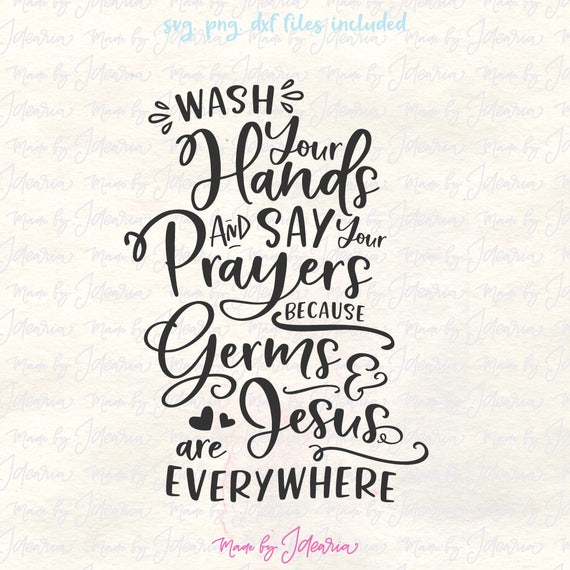 svg, png, dxf files included
WASH
Your
Hands
AND SAY Your
Prayers
BECAUSE
Germs &
Jesus
are
EVERYWHERE
Made by Jdearia